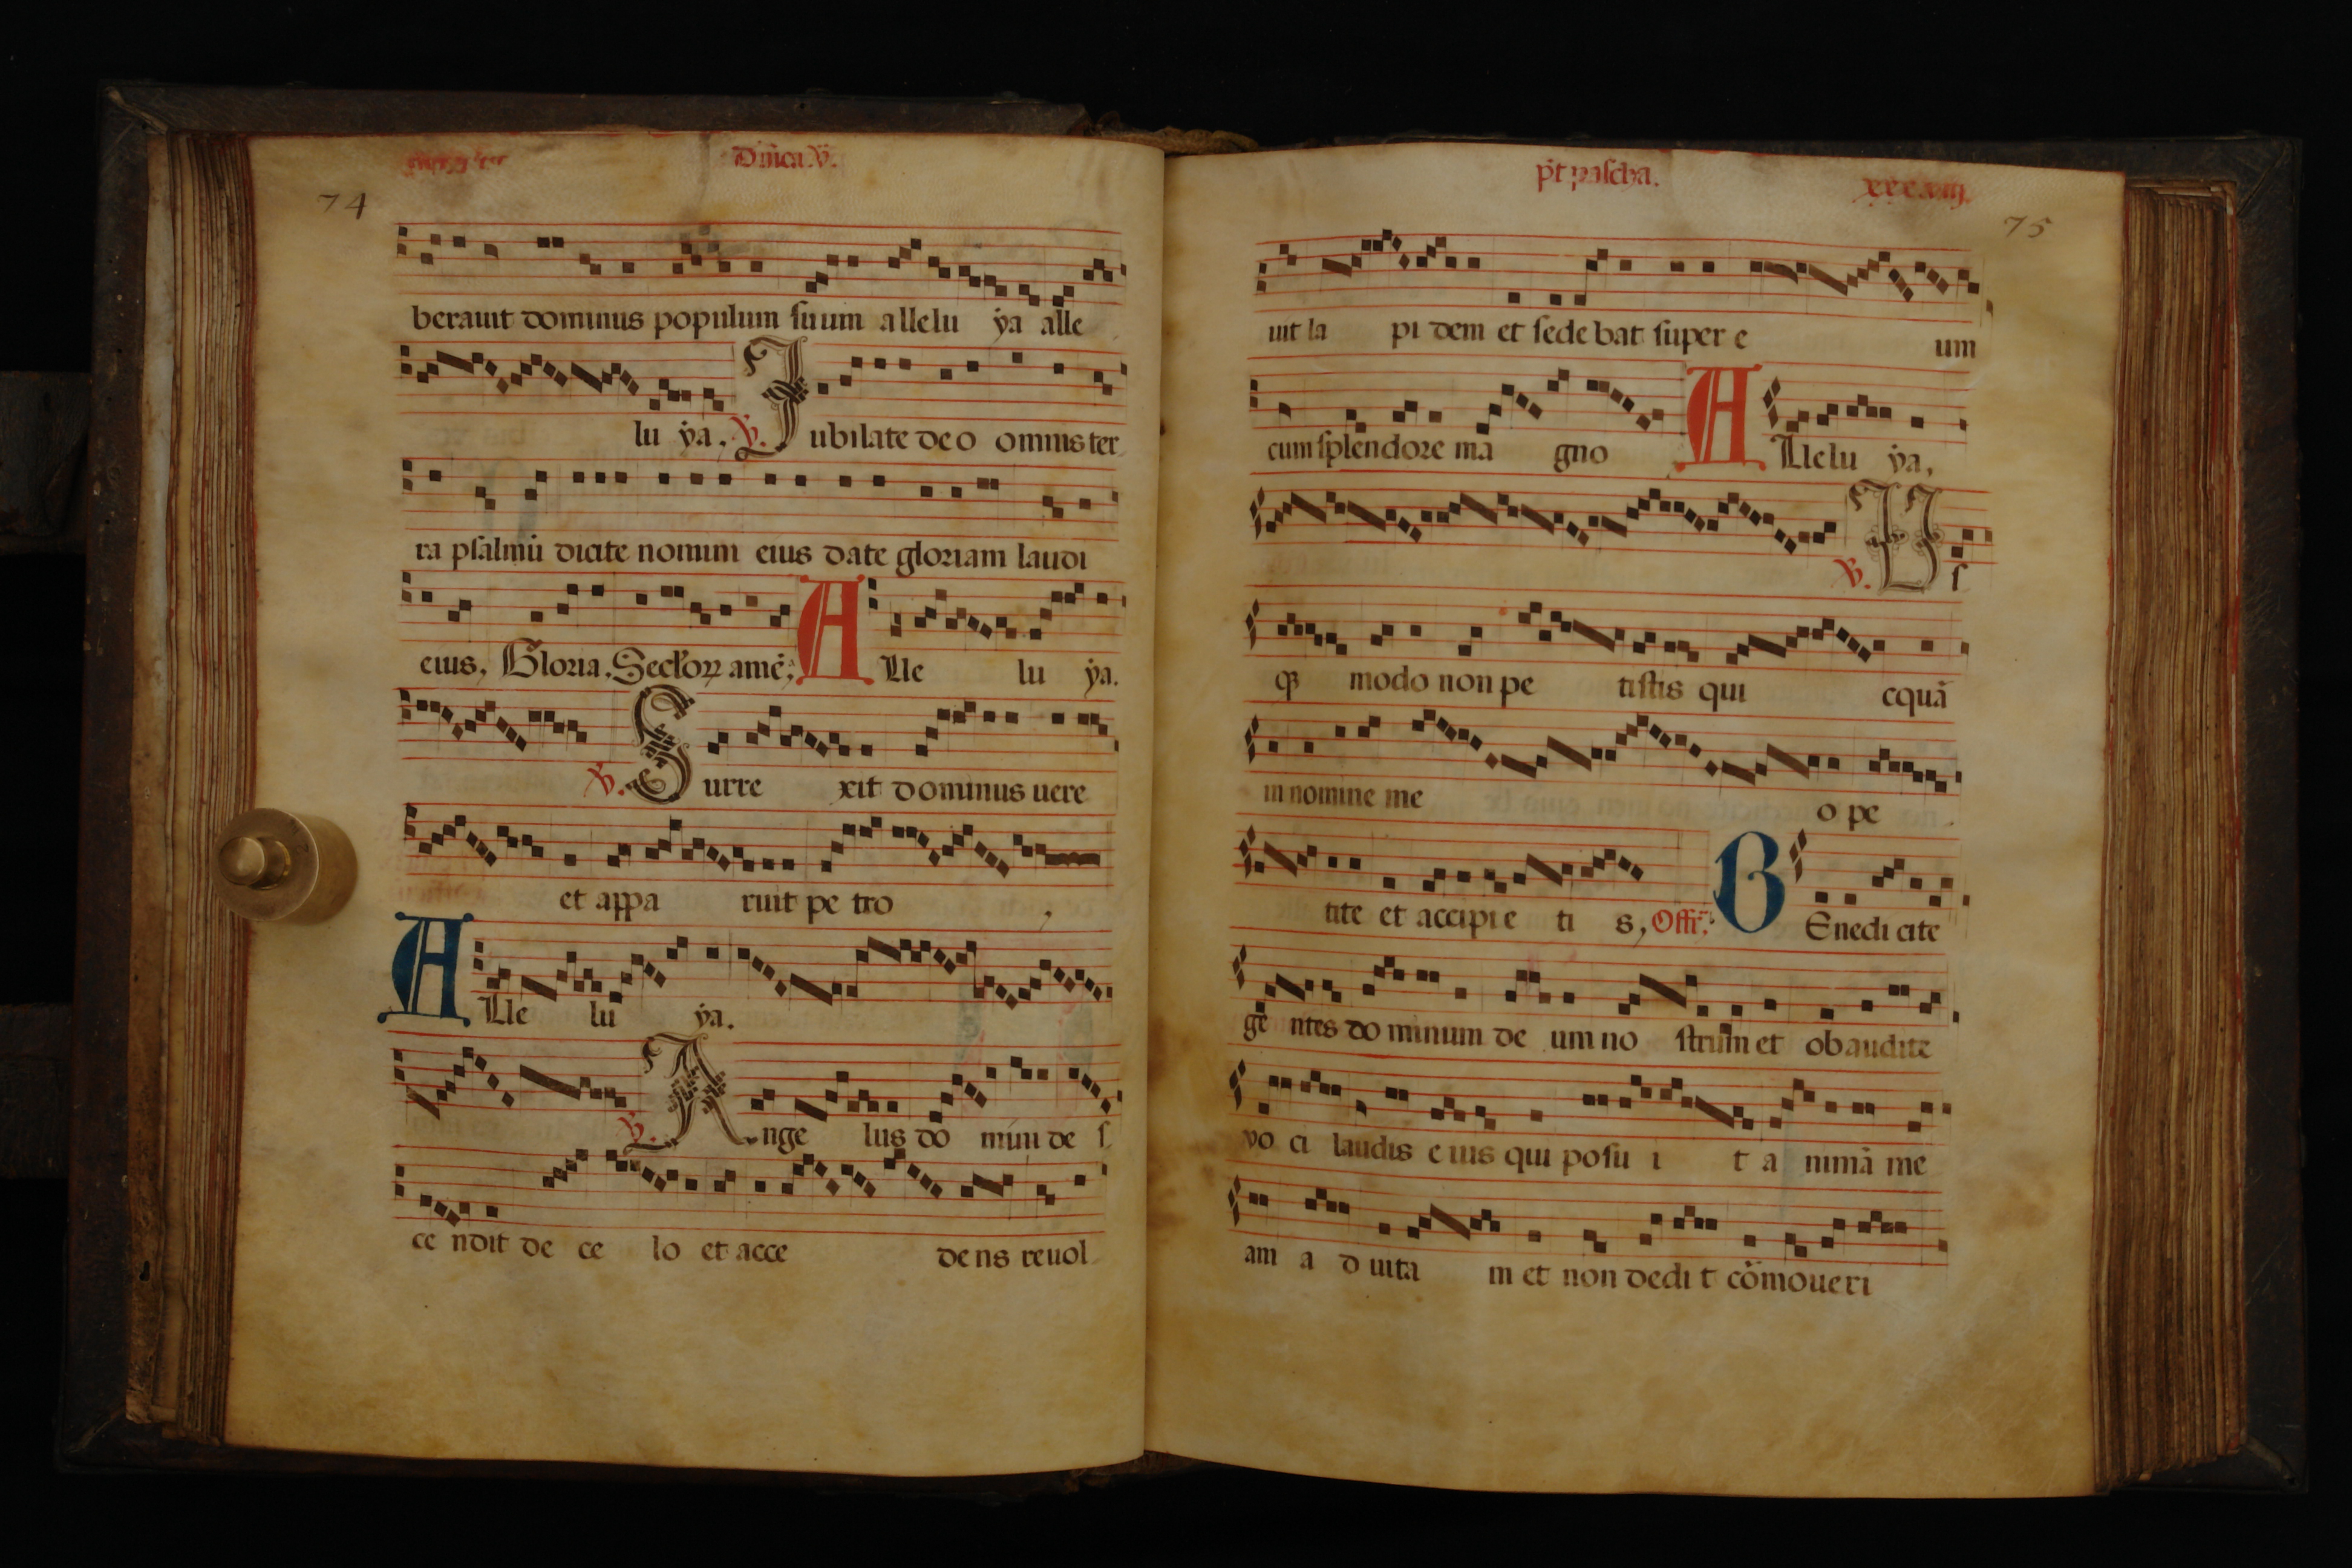 74
Dñica.v.
berauit dominus populum suum allelu ẏa alle
lu ẏa, ℣. Jubilate deo omnis ter
ra psalmũ dicite nomini eius date gloriam laudi
eius, Gloria, Seclor̃ꝝ amẽ, ALle lu ẏa.
℣. Surre xit dominus uere
et appa ruit pe tro ,
ALle lu ẏa.
℣. Ange lus do mini de s
ce ndit de ce lo et acce dens reuol
p̃t pascha.
xxxxiij.
75
uit la pi dem et sede bat super e um
cum splendore ma gno ALlelu ẏa,
℣. Us
qꝫ modo non pe tistis qui cquã
in nomine me o pe
tite et accipi e ti s, Offr̃. BEnedi cite
ge ntes do minum de um no strum et ob audite
vo ci laudis e ius qui posu i t a nimã me
am a d uita m et non dedi t cõmoueri